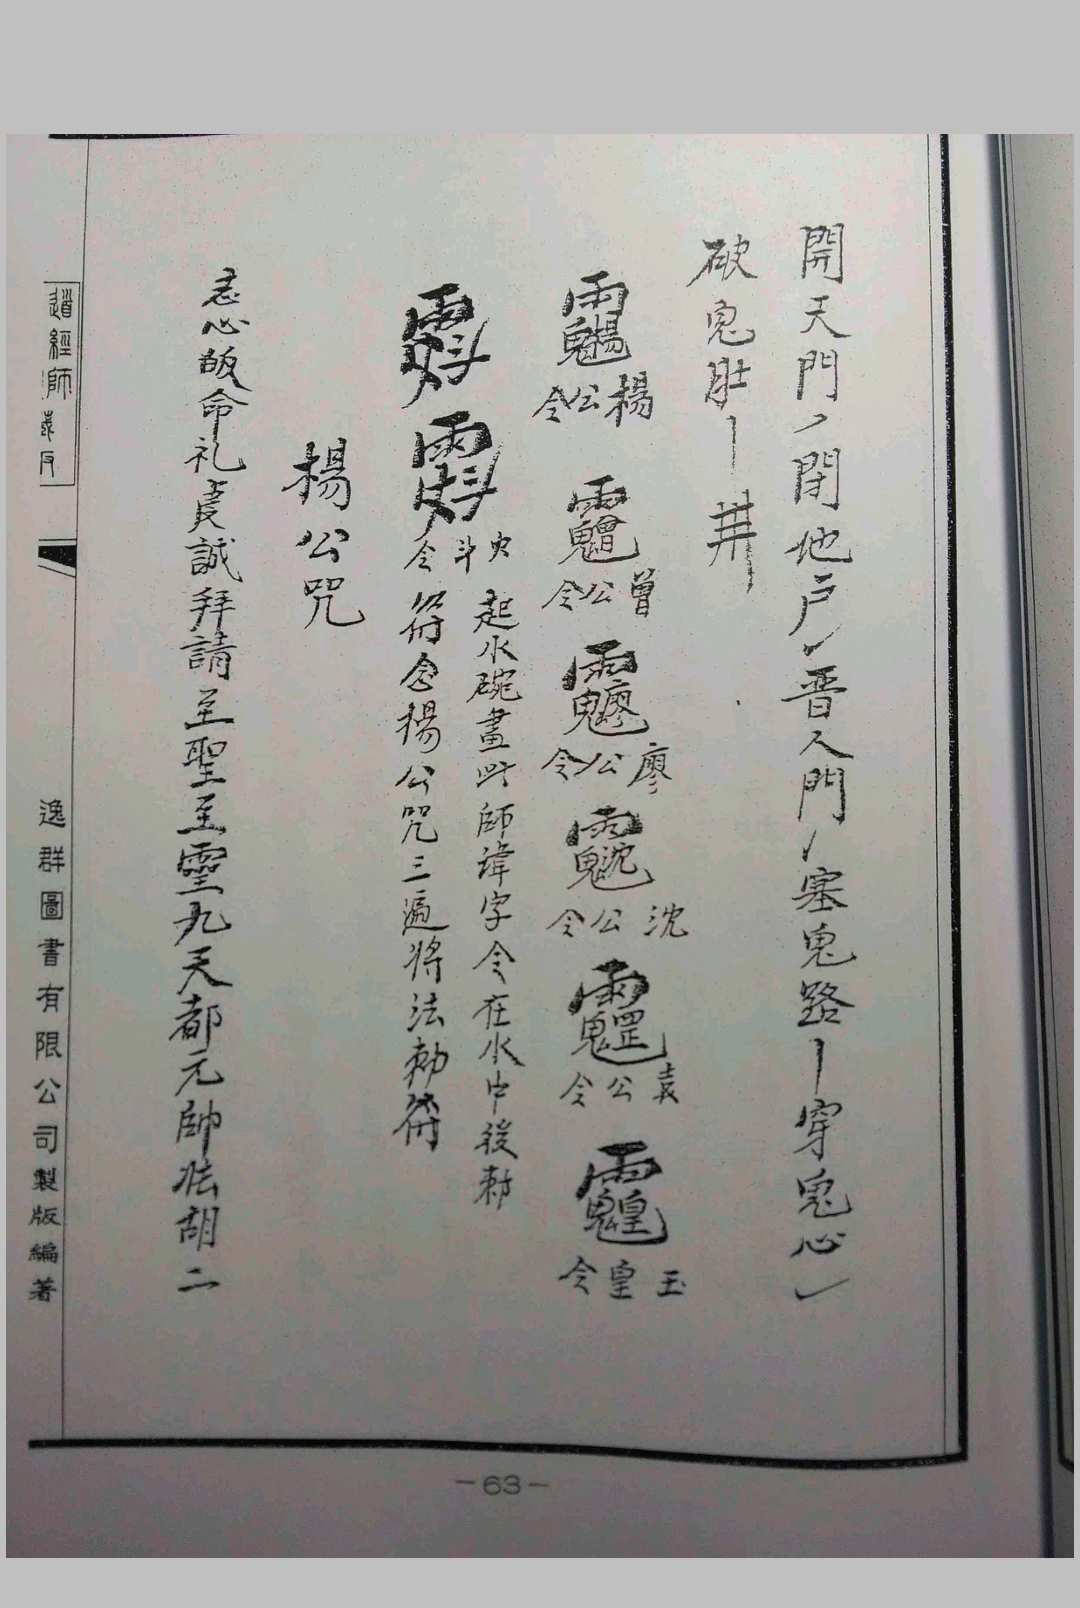 開天門丿閉地戶㇏晋人門丿塞鬼路丨穿鬼心㇏
破鬼肚丨井
楊公令 曾公令 廖公令 沈公令 袁公令 玉皇令
火斗令 起水碗畫此師諱字令在水中後勅
符念楊公咒三遍將法勅符
楊公咒
志心皈命礼虔誠拜請至聖至靈九天都元帥法胡二
道經師
逸群圖書有限公司製版編著
-63-